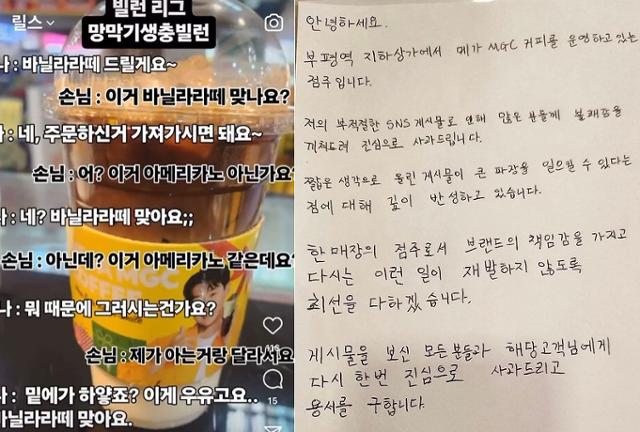 릴스
빌런 리그
망막기생충빌런
나 : 바닐라라떼 드릴게요~
손님 : 이거 바닐라라떼 맞나요?
나 : 네, 주문하신거 가져가시면 돼요~
손님 : 어? 이거 아메리카노 아닌가요?
나 : 네? 바닐라라떼 맞아요;;
손님 : 아닌데? 이거 아메리카노 같은데요?
MGC
COFFEE
나 : 뭐 때문에 그러시는건가요?
손님 : 제가 아는거랑 달라서요
15
나 : 밑에가 하얗죠? 이게 우유고요..
바닐라라떼 맞아요.
안녕하세요.
부평역 지하상가에서 메가 MGC 커피를 운영하고 있는
점주 입니다.
저의 부적절한 SNS 게시물로 인해 많은 분들께 불쾌감을
끼쳐드려 진심으로 사과드립니다.
짧은 생각으로 올린 게시물이 큰 파장을 일으킬 수 있다는
점에 대해 깊이 반성하고 있습니다.
한 매장의 점주로서 브랜드의 책임감을 가지고
다시는 이런 일이 재발하지 않도록
최선을 다하겠습니다.
게시물을 보신 모든분들과 해당고객님에게
다시 한번 진심으로 사과드리고
용서를 구합니다.